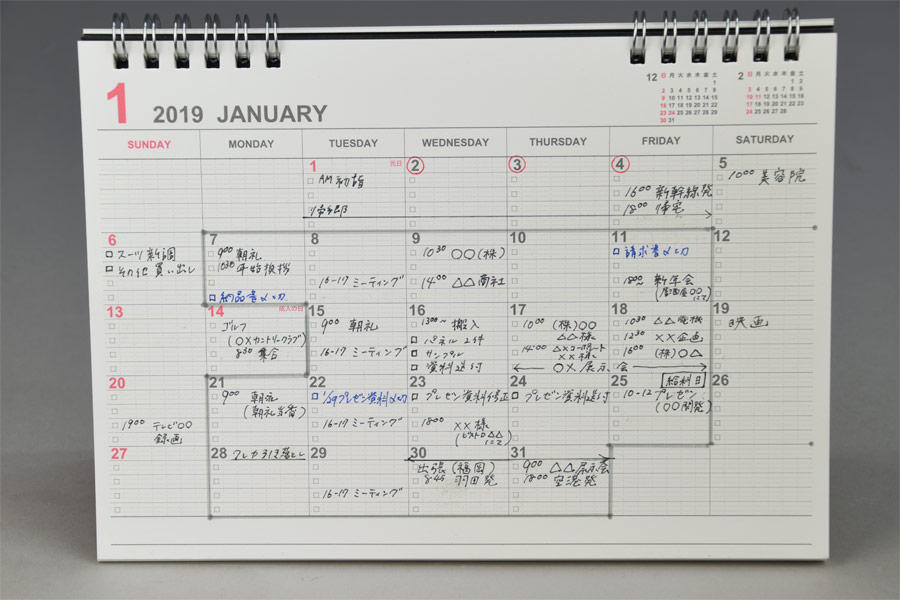 1 2019 JANUARY
12 日 月 火 水 木 金 土
1
2 3 4 5 6 7 8
9 10 11 12 13 14 15
16 17 18 19 20 21 22
23 24 25 26 27 28 29
30 31
2 日 月 火 水 木 金 土
1 2
3 4 5 6 7 8 9
10 11 12 13 14 15 16
17 18 19 20 21 22 23
24 25 26 27 28
SUNDAY MONDAY TUESDAY WEDNESDAY THURSDAY FRIDAY SATURDAY
1 元日
AM 初詣
帰省
2
3
4
16:00 新幹線発
18:00 帰宅
5
10:00 美容院
6
スーツ新調
その他買い出し
7
9:00 朝礼
10:30 年始挨拶
納品書〆切
8
16-17 ミーティング
9
10:30 ○○(株)
14:00 △△商社
10
11
請求書〆切
18:00 新年会
(居酒屋○○にて)
12
13
14 成人の日
ゴルフ
(○×カントリークラブ)
8:30 集合
15
9:00 朝礼
16-17 ミーティング
16
13:00~ 搬入
パネル 2件
サンプル
資料送付
17
10:00 (株)○○
△△様
14:00 △×コーポレート
××様
○×展示会
18
10:30 △△電機
12:30 ××企画
16:00 (株)○△
19
映画
20
19:00 テレビ○○
録画
21
9:00 朝礼
(朝礼当番)
22
1/29プレゼン資料〆切
16-17 ミーティング
23
プレゼン資料修正
18:00 ××様
(ビストロ△△にて)
24
プレゼン資料送付
25 給料日
10-12 プレゼン
(○○開発)
26
27
28 クレカ引き落とし
29
16-17 ミーティング
30
出張(福岡)
8:45 羽田発
31
9:00 △△展示会
18:00 空港発